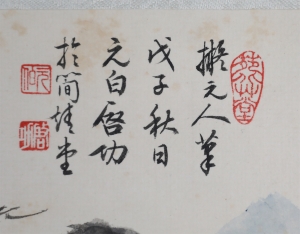 擬元人筆
戊子秋日
元白啓功
於簡靖堂